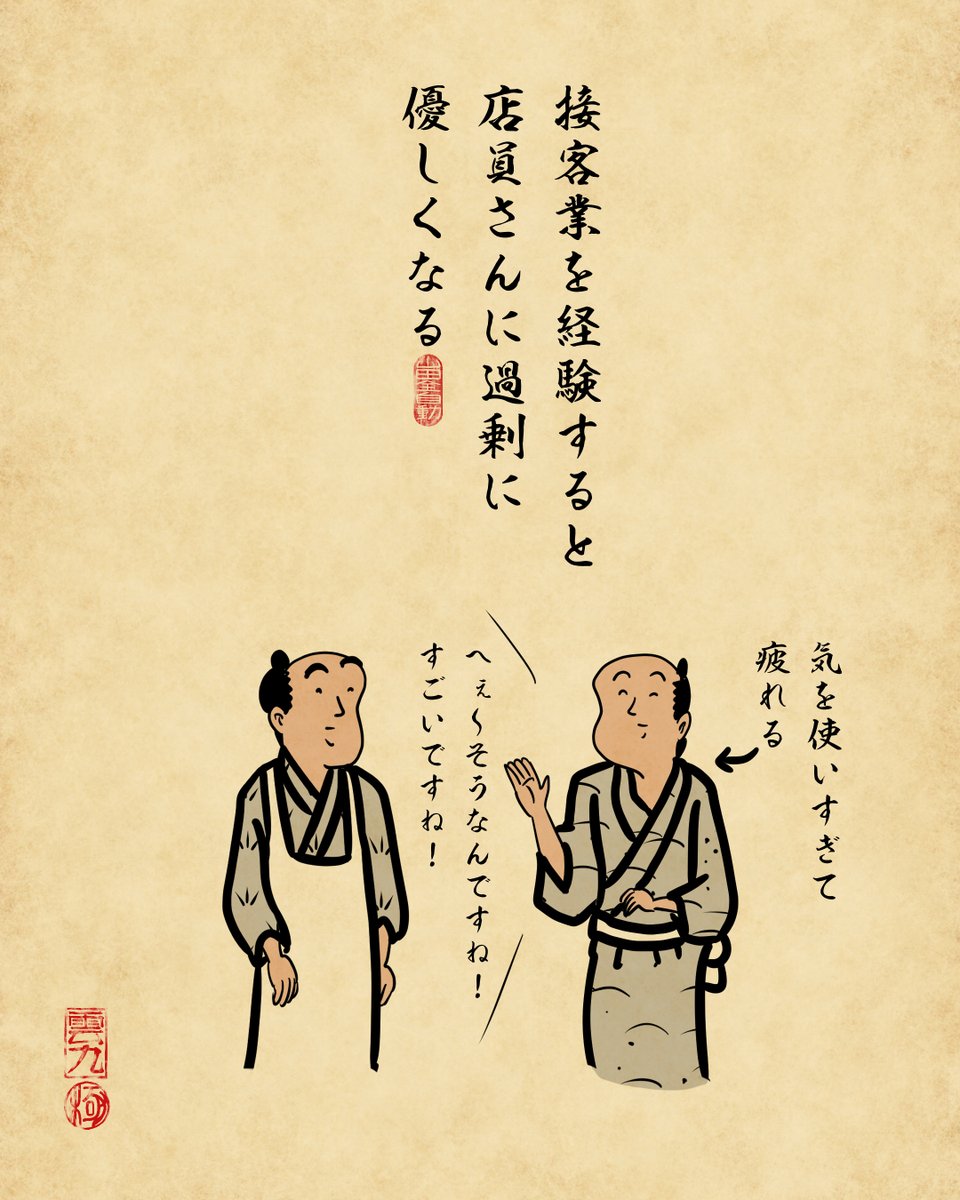 接客業を経験すると
店員さんに過剰に
優しくなる
気を使いすぎて
疲れる
へぇ〜そうなんですね！
すごいですね！